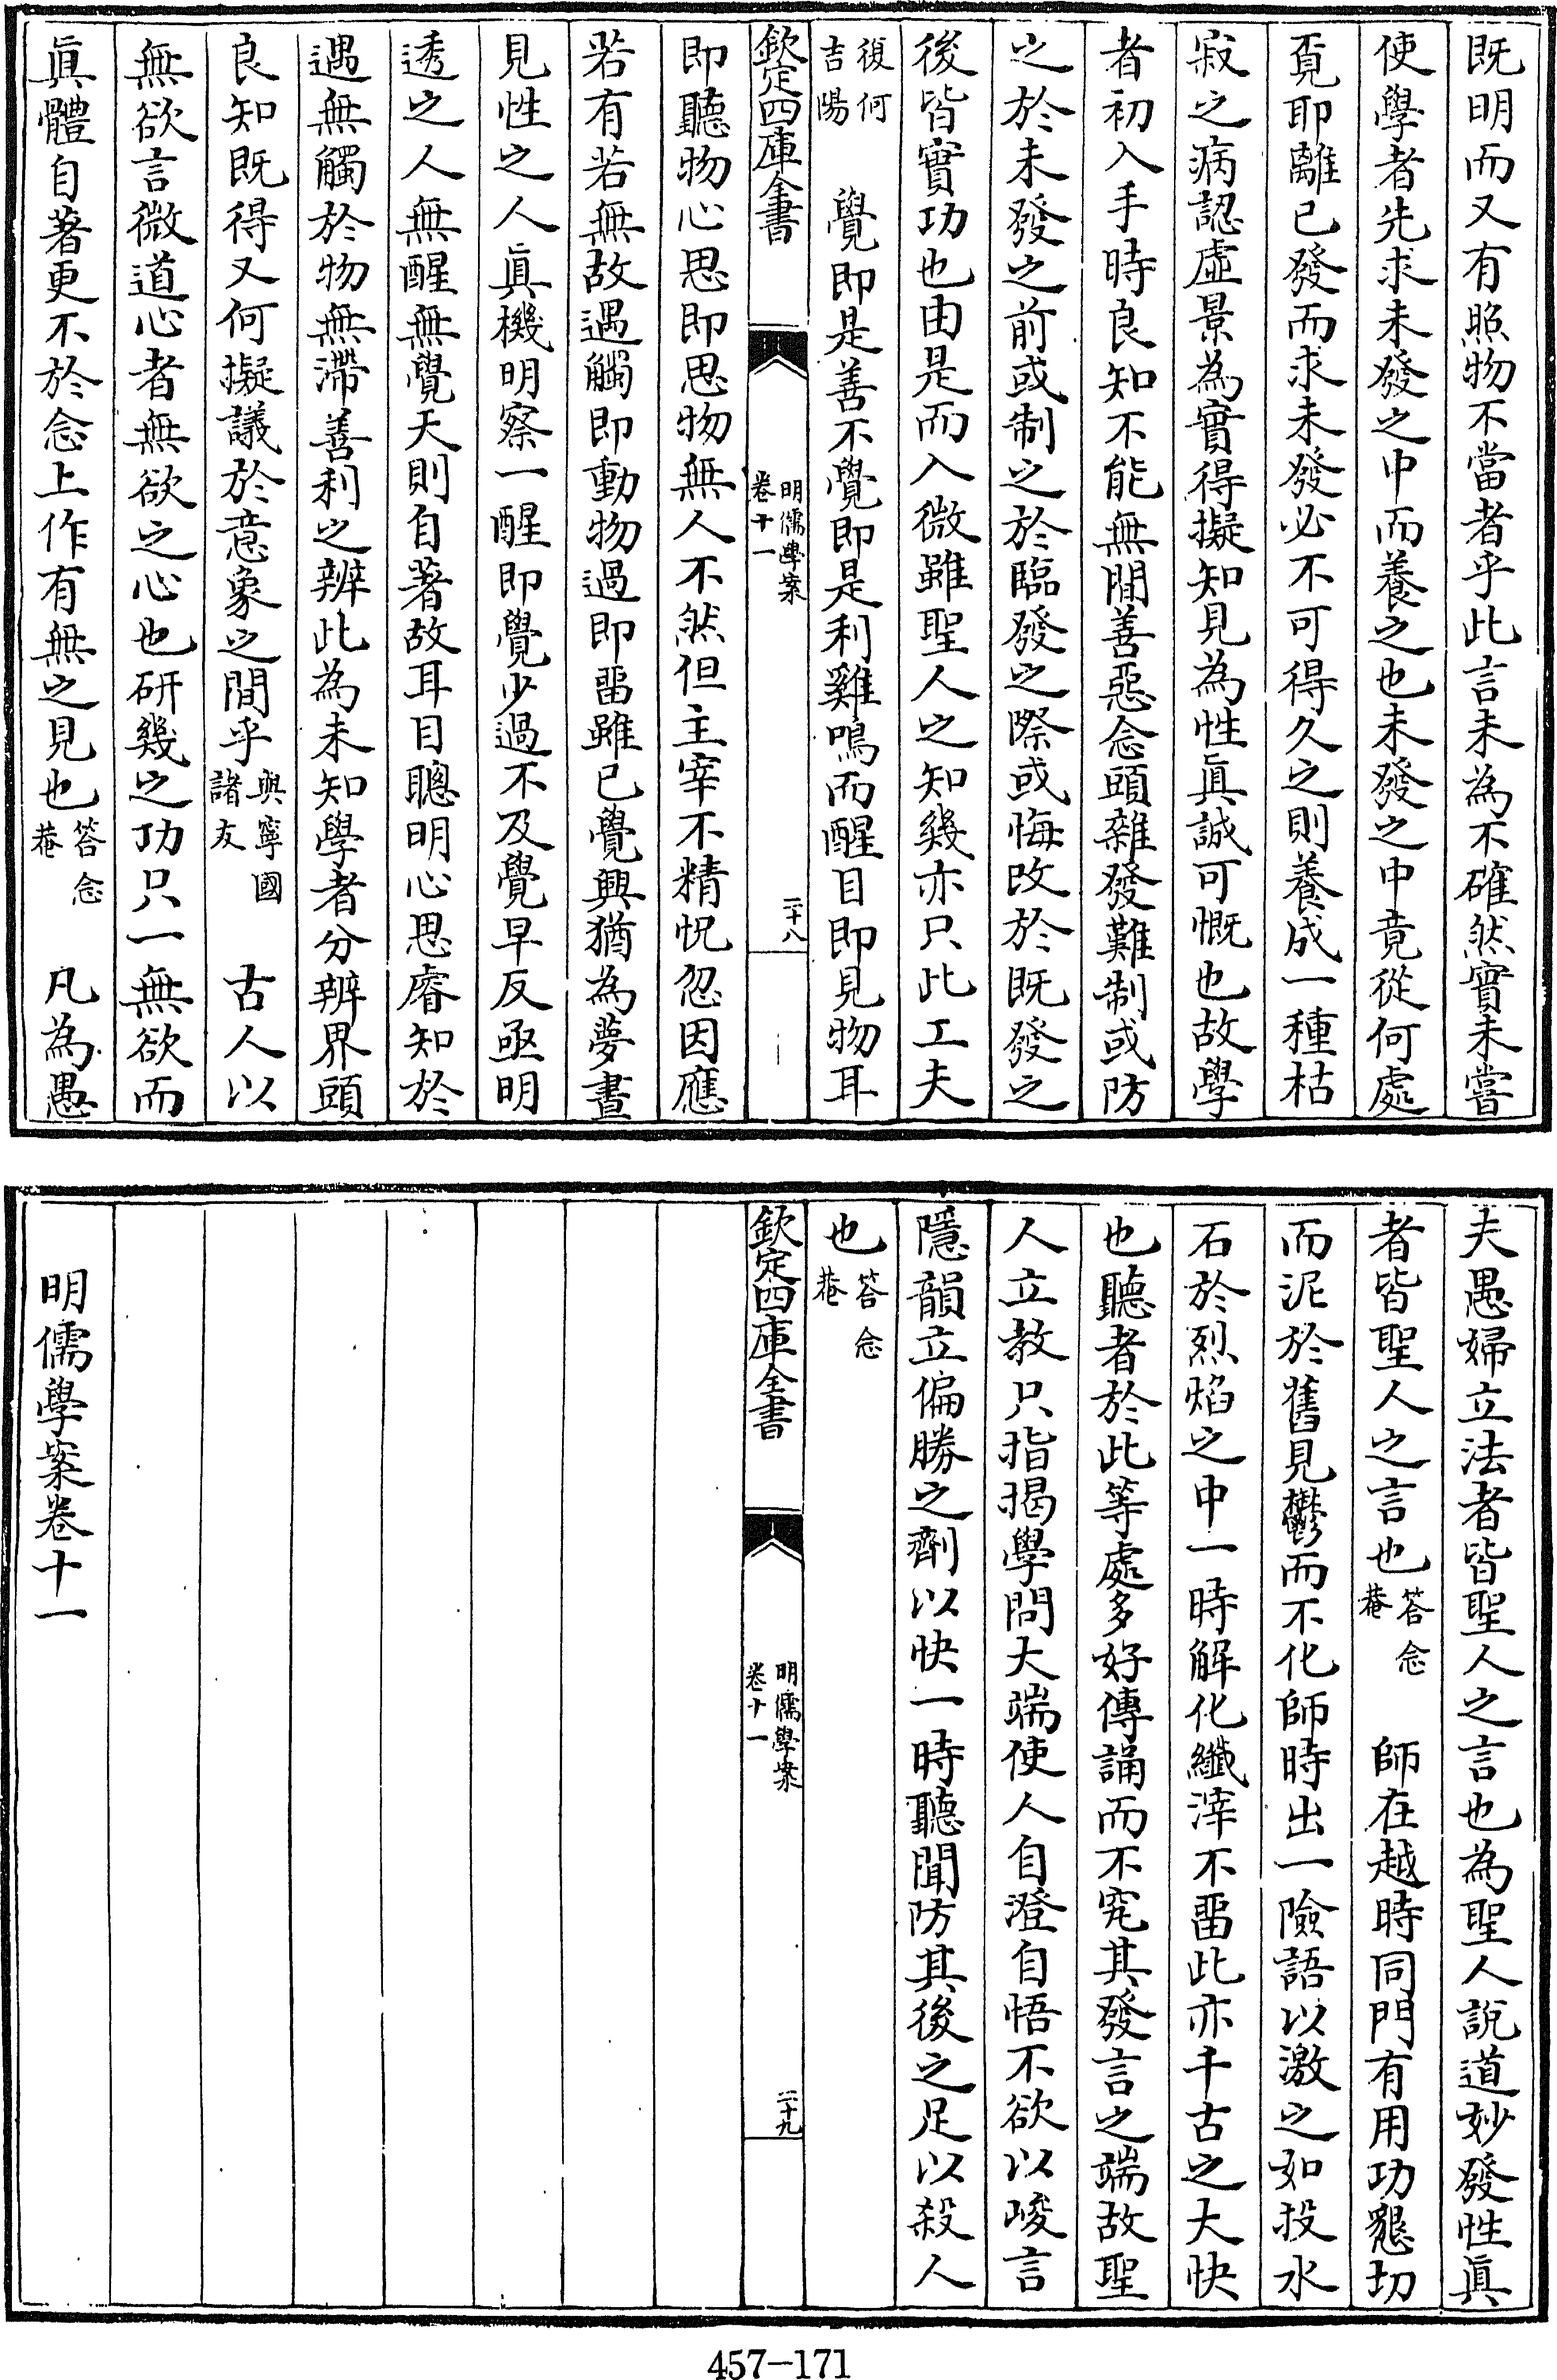 既明而又有照物不當者乎此言未為不確然實未嘗
使學者先求未發之中而養之也未發之中竟從何處
覔耶離已發而求未發必不可得久之則養成一種枯
寂之病認虛景為實得擬知見為性眞誠可慨也故學
者初入手時良知不能無間善惡念頭雜發難制或防
之於未發之前或制之於臨發之際或悔改於既發之
後皆實功也由是而入微雖聖人之知幾亦只此工夫
復何
吉陽
覺即是善不覺即是利雞鳴而醒目即見物耳
欽定四庫全書
明儒學案
卷十一
二十八
即聽物心思即思物無人不然但主宰不精怳忽因應
若有若無故遇觸即動物過即畱雖已覺興猶為夢晝
見性之人眞機明察一醒即覺少過不及覺早反亟明
透之人無醒無覺天則自著故耳目聰明心思睿知於
遇無觸於物無滯善利之辨此為未知學者分辨界頭
良知既得又何擬議於意象之間乎
與寧國
諸友
古人以
無欲言微道心者無欲之心也研幾之功只一無欲而
眞體自著更不於念上作有無之見也
答念
菴
凡為愚
夫愚婦立法者皆聖人之言也為聖人說道妙發性眞
者皆聖人之言也
答念
菴
師在越時同門有用功懇切
而泥於舊見鬱而不化師時出一險語以激之如投水
石於烈焰之中一時解化纖滓不畱此亦千古之大快
也聽者於此等處多好傳誦而不究其發言之端故聖
人立教只指揭學問大端使人自澄自悟不欲以峻言
隱韻立偏勝之劑以快一時聽聞防其後之足以殺人
也
答念
菴
欽定四庫全書
明儒學案
卷十一
二十九
明儒學案卷十一
457-171